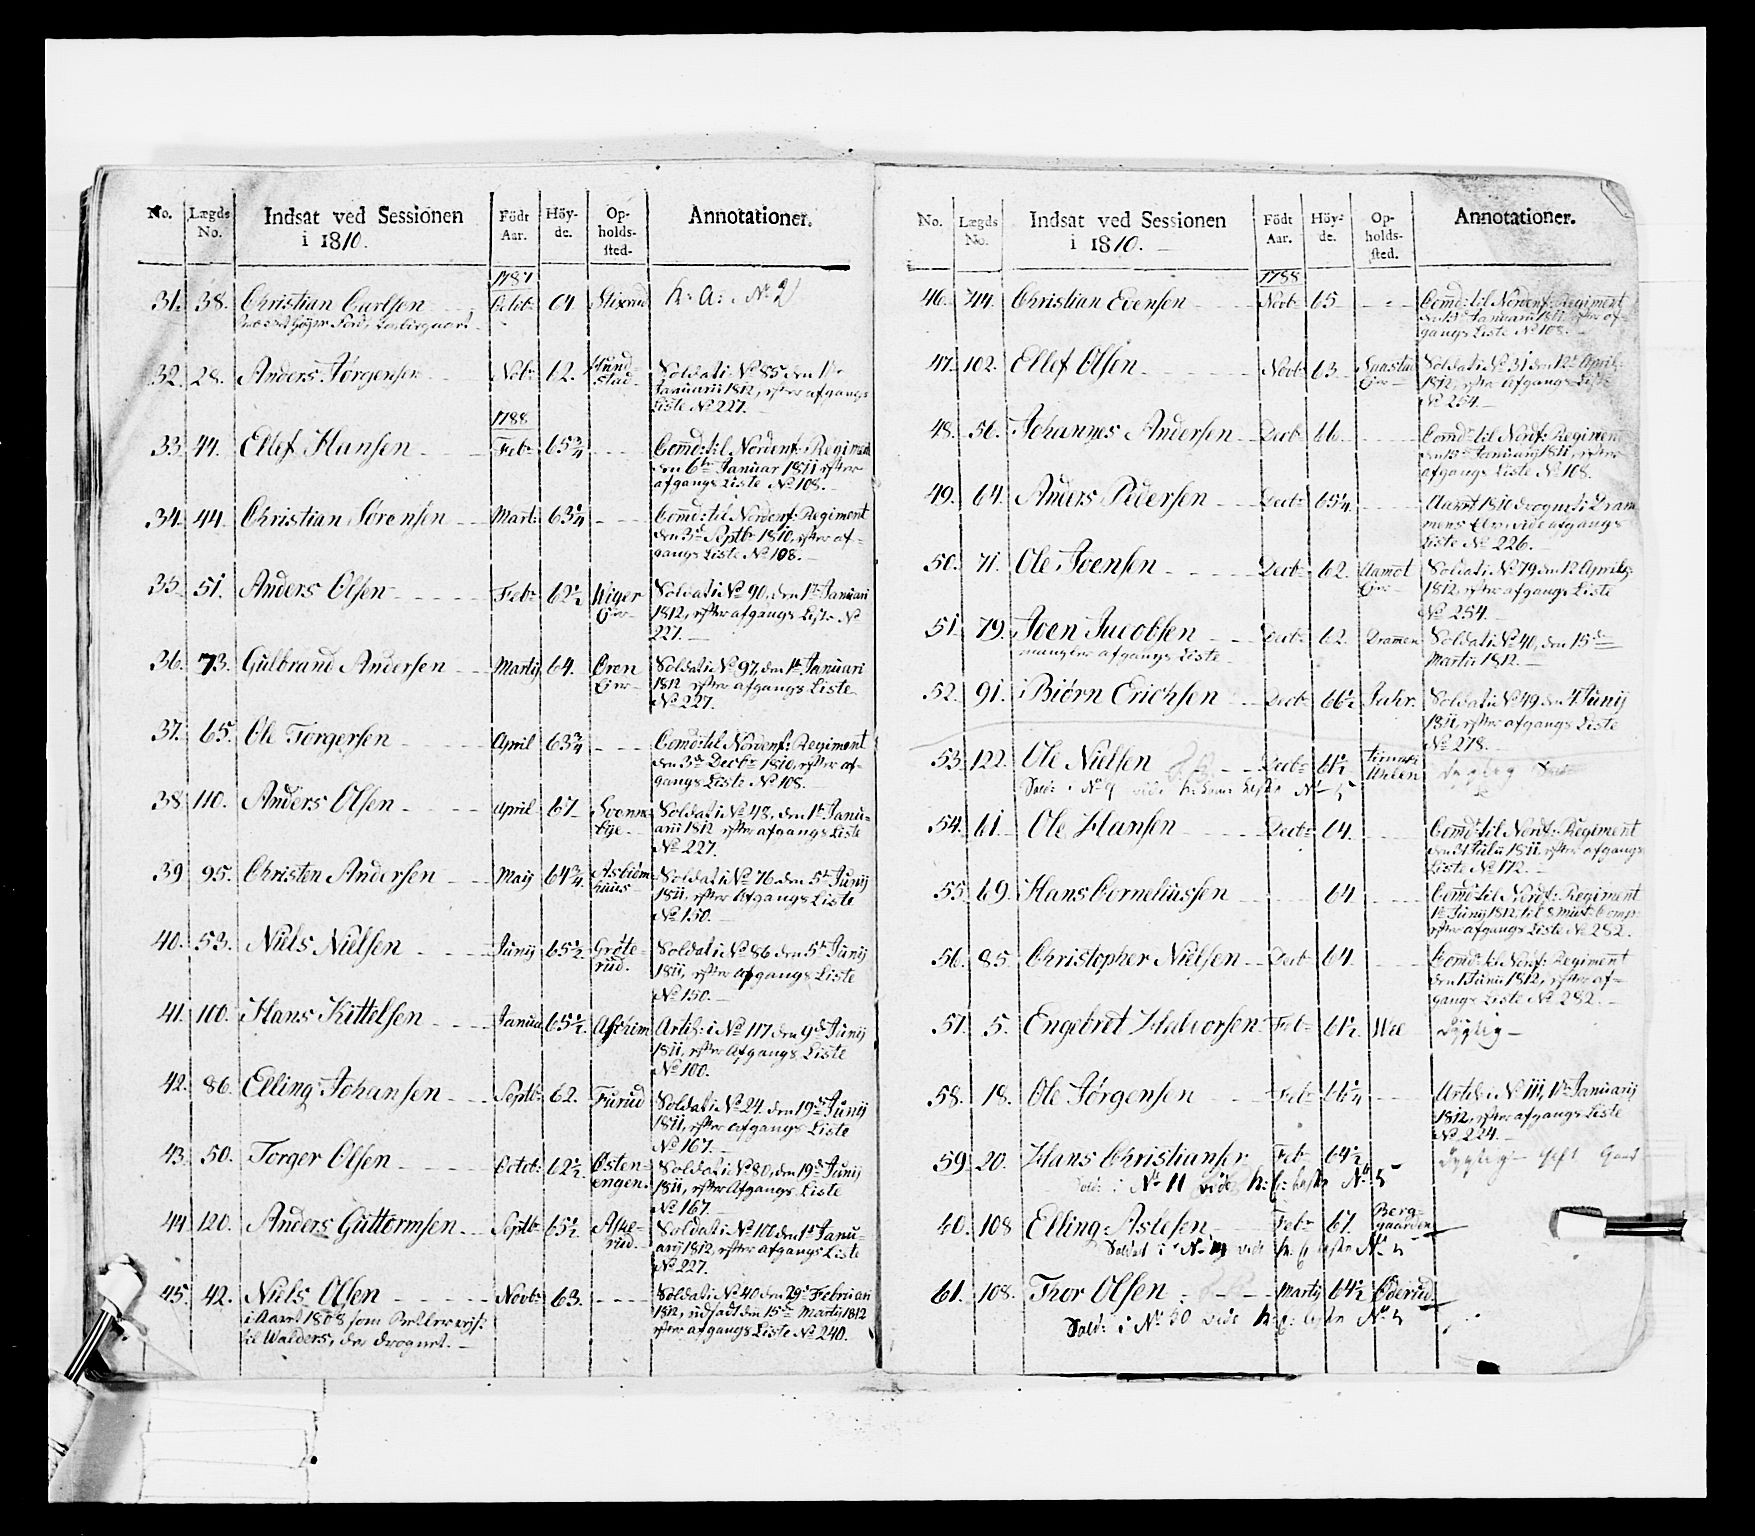 No. Lægds No. Indsat ved Sessionen i 1810. Födt Aar. Höyde. Opholds-sted. Annotationer.
1787
31. 38. Christian Carlsen Octob: 64 Stixrud h: a: No 2
32. 28. Anders Jørgensen Nob: 62. Hundstad Soldat i No 85 den 1te
Januarii 1812, efter afgangs
Liste No 227.
1788
33. 44. Ellef Hansen Feb: 65 3/4 Comd: til Nordenf: Regiment
den 6te Januar 1811 efter
afgangs Liste No 108.
34. 44. Christian Sørensen Mart: 63 1/4 Comd: til Nordenf: Regiment
den 3de Septbr 1810, efter af-
gangs Liste No 108.
35. 51. Anders Olsen Feb: 62 1/2 Wiger Eier Soldat i No 90, den 1te Januari
1812, efter afgangs Liste No
227.
36. 73. Gulbrand Andersen Martij 64. Øren Eier Soldat i No 97, den 1te Januari
1812 efter afgangs Liste
No 227.
37. 65. Ole Torgersen April 63 3/4 Comd: til Nordenf: Regiment
den 3de Decbr 1810, efter af-
gangs Liste No 108.
38. 110. Anders Olsen April 67 Soldat i No 48, den 1te Janu-
arii 1812 efter afgangs Liste
No 227.
39 95. Christen Andersen Maij 64 3/4 Soldat i No 76 den 5te Junij
1811, efter afgangs Liste
No 150.
40. 53. Niels Nielsen Junij 65 1/2 Gröte-
rud. Soldat i No 86 den 5te Junij
1811, efter afgangs Liste
No 150.
41. 100. Hans Kittelsen Janua 65 1/2 Aschim Artil: i No 117 den 9de Junij
1811, efter Afgangs Liste
No 100.
42. 86. Elling Johansen Septb: 62. Furud Soldat i No 24, den 19de Junij
1811, efter afgangs Liste
No 167.
43. 50. Torger Olsen Octob: 62 1/2 Østen-
engen. Soldat i No 80, den 19de Junij
1811, efter Afgangs Liste
No 167.
44. 120. Anders Guttormsen Septb: 65 1/2 Aske-
rud. Soldat i No 10 den 1te Janu-
arij 1812, efter afgangs Liste
No 227.
45. 42. Niels Olsen Novb: 63. Soldat i No 40 den 29de Februari
1812, udsadt den 15de Martij 1812
efter afgangs Liste No 240.
i Aaret 1808 som
til Walders, der Drognet.
No. Lægds No. Indsat ved Sessionen i 1810. Födt Aar. Höyde. Opholds-sted. Annotationer.
1788
46. 44. Christian Evensen Novb: 65 Comd: til Nordenf: Regiment
den 13de Januarii 1811 efter af-
gangs Liste No 108.
47. 102. Ellef Olsen Novb: 63 Eier Soldat i No 31 den 12te April
1812, efter afgangs Liste
No 254.
48. 56. Johannes Andersen Decb: 66 Comd: til Nordf: Regiment
den 13de Januarij 1811, efter
afgangs Liste No 108.
49. 64. Anders Pedersen Decb: 65 1/4 Aaret 1810 drognet i Dram-
mens Elv, vide afgangs
Liste No 226.
50. 71. Ole Joensen Decb: 62. Aamot Eier Soldat i No 79 den 12 Aprily
1812, efter afgangs Liste
No 254.
51. 79. Joen Jacobsen Decb: 62. Dramen Soldat i No 40, den 15de
mangler afgangs Liste Martii 1812.
52. 91. Biörn Erichsen Decb: 66 1/2 Jahr. Soldat i No 49 den 4 Junij
1811, efter afgangs Liste
No 278.
53. 122. Ole Nielsen Decb: 61 1/2 dygtig
Sold: i No 9 vide h: No 5
54. 61. Ole Hansen Decb: 64. Comd: til Nordf: Regiment
den 31 Julii 1811, efter afgangs
Liste No 172.
55. 69. Hans Corneliussen 64 Comd: til Nordf: Regiment
1te Junij 1812 til 8 Comp:
efter afgangs Liste No 282.
56. 85. Christopher Nielsen Decb: 64. Comd: til Nordf: Regiment
den 1 Junii 1812, efter af-
gangs Liste No 282.
57. 5. Engebret Halvorsen Feb: 61 1/2 Wee dygtig
58. 18. Ole Jörgensen Feb: 66 1/4 Artil: i No 111, 1te Januarij
1812, efter afgangs Liste
No 224.
59. 20. Hans Christiansen Feb: 64 1/2 dygtig gift
Sold: i No 11 vide h: liste No 5
60. 108 Elling Aslesen Feb: 67. Berg-
gaarden
Soldat i No vide h: liste No 5
61. 108. Thor Olsen Martij 64 1/2 Øderud
Sold: i No 50 vide h: liste No 5